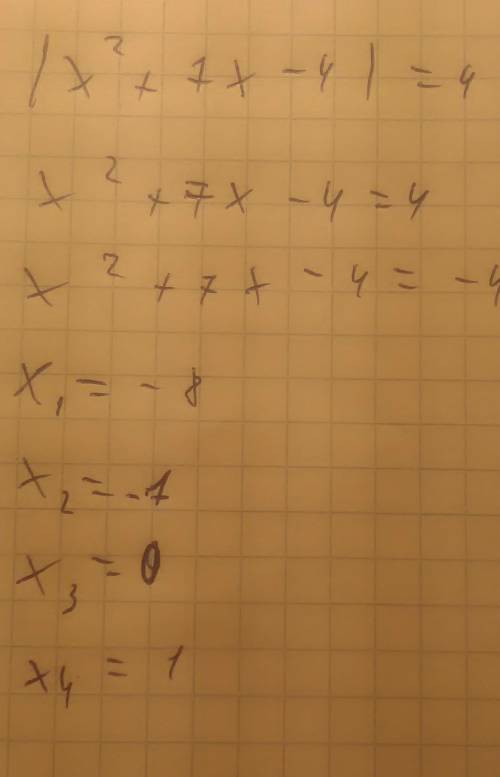 |x² + 7x - 4| = 4
x² + 7x - 4 = 4
x² + 7x - 4 = -4
x₁ = - 8
x₂ = -7
x₃ = 0
x₄ = 1